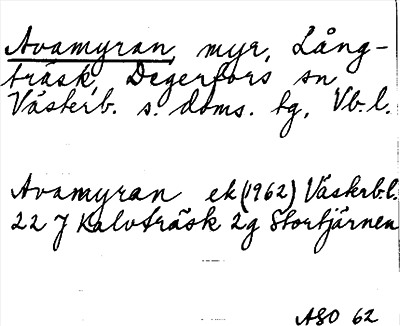 Avamyran, myr, Lång-
träsk, Degerfors sn
Västerb. s. doms. tg, Vb. l.
Avamyran ek (1962) Västerb.l.
22 J Kalvträsk 2g Stortjärnen
ASO 62